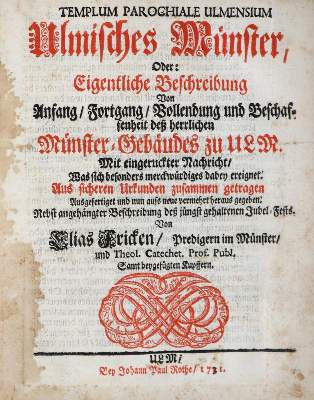 TEMPLUM PAROCHIALE ULMENSIUM
Ulmisches Münster,
Oder:
Eigentliche Beschreibung
Von
Anfang/ Fortgang/ Vollendung und Beschaf-
fenheit deß herrlichen
Münster-Gebäudes zu ULM.
Mit eingeruckter Nachricht/
Was sich besonders merckwürdiges dabey ereignet.
Aus sicheren Urkunden zusammen getragen
Ausgefertiget und nun aufs neue vermehrt heraus gegeben.
Nebst angehängter Beschreibung deß jüngst gehaltenen Jubel-Fests.
Von
Elias Fricken/ Predigern im Münster/
und Theol. Catechet. Prof. Publ.
Samt beygefügten Kupffern.
ULM/
Bey Johann Paul Rothe/ 1731.